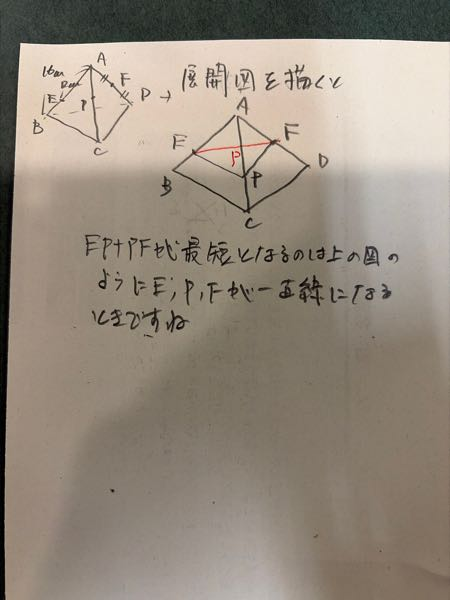 → 展開図を描くと
A
16cm
F
E
P
D
B
C
A
E
F
P
B
P
D
C
EP+PFが最短となるのは上の図の
ようにE,P,Fが一直線になる
ときですね